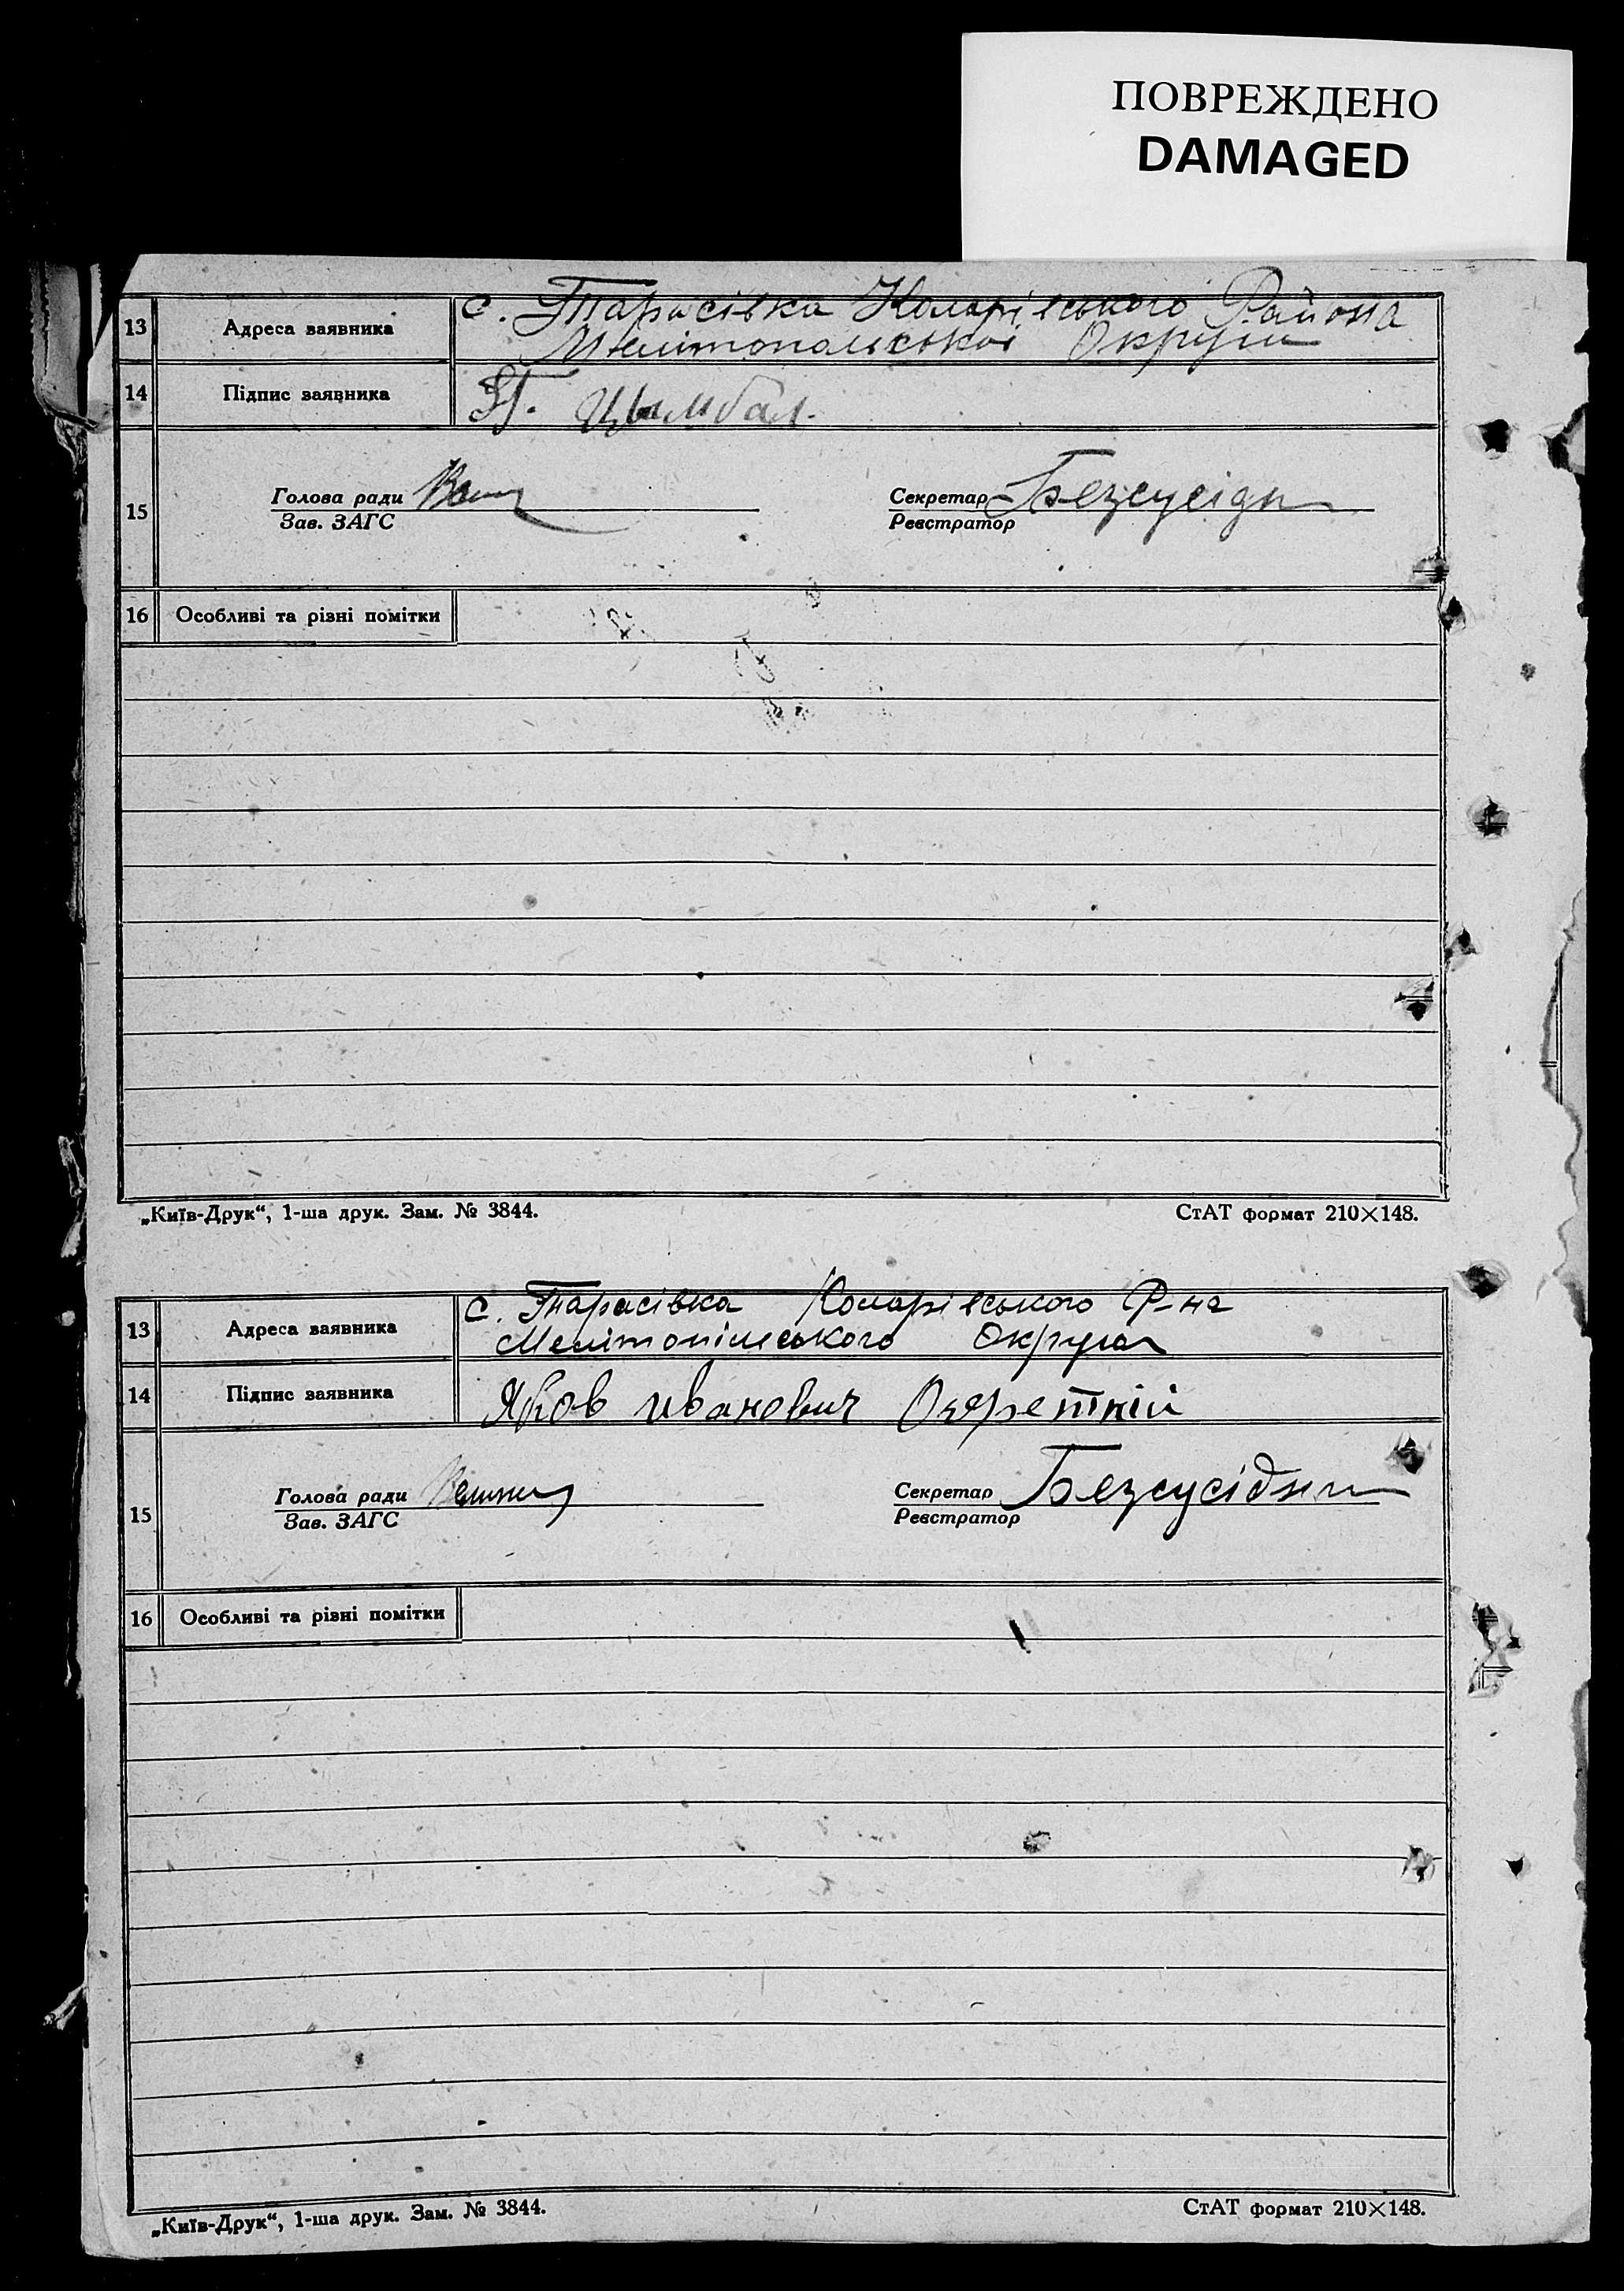 ПОВРЕЖДЕНО
DAMAGED
13 Адреса заявника с. Тарасівка Коларівського Района
Мелітопольської Округи
14 Підпис заявника Цымбал.
15 Голова ради
Зав. ЗАГС
Секретар Безсусідн
Реєстратор
16 Особливі та різні помітки
„Київ-Друк“, 1-ша друк. Зам. № 3844. СтАТ формат 210×148.
13 Адреса заявника с. Тарасівка Коларівського Р-на
Мелітопільського Округа
14 Підпис заявника Яков иванович
15 Голова ради
Зав. ЗАГС
Секретар Безсусідн
Реєстратор
16 Особливі та різні помітки
„Київ-Друк“, 1-ша друк. Зам. № 3844. СтАТ формат 210×148.